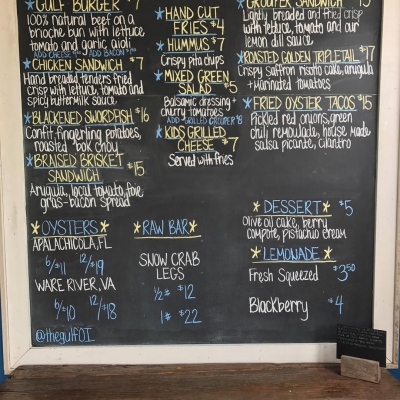 GULF BURGER $7
100% natural beef on a
brioche bun with lettuce
tomato and garlic aioli
ADD CHEESE ADD BACON
CHICKEN SANDWICH $7
Hand breaded tenders fried
crisp with lettuce, tomato and
spicy buttermilk sauce
BLACKENED SWORDFISH $16
Confit fingerling potatoes,
roasted bok choy
BRAISED BRISKET
SANDWICH $15
Arugula, local tomato, foie
gras-bacon spread
HAND CUT
FRIES $4
HUMMUS $7
Crispy pita chips
MIXED GREEN
SALAD $5
Balsamic dressing +
cherry tomatoes
ADD GRILLED GROUPER $8
KIDS GRILLED
CHEESE $7
Served with fries
GROUPER SANDWICH $15
Lightly breaded and fried crisp
with lettuce, tomato and our
lemon dill sauce
ROASTED GOLDEN TRIPLETAIL $17
Crispy saffron risotto cake, arugula
+ marinated tomatoes
FRIED OYSTER TACOS $15
Pickled red onions, green
chili remoulade, house made
salsa picante, cilantro
OYSTERS
APALACHICOLA, FL
6/$11 12/$19
WARE RIVER, VA
6/$10 12/$18
@thegulfOI
RAW BAR
SNOW CRAB
LEGS
1/2# $12
1# $22
DESSERT $5
Olive oil cake, berry
compote, pistachio cream
LEMONADE
Fresh Squeezed $3.50
Blackberry $4